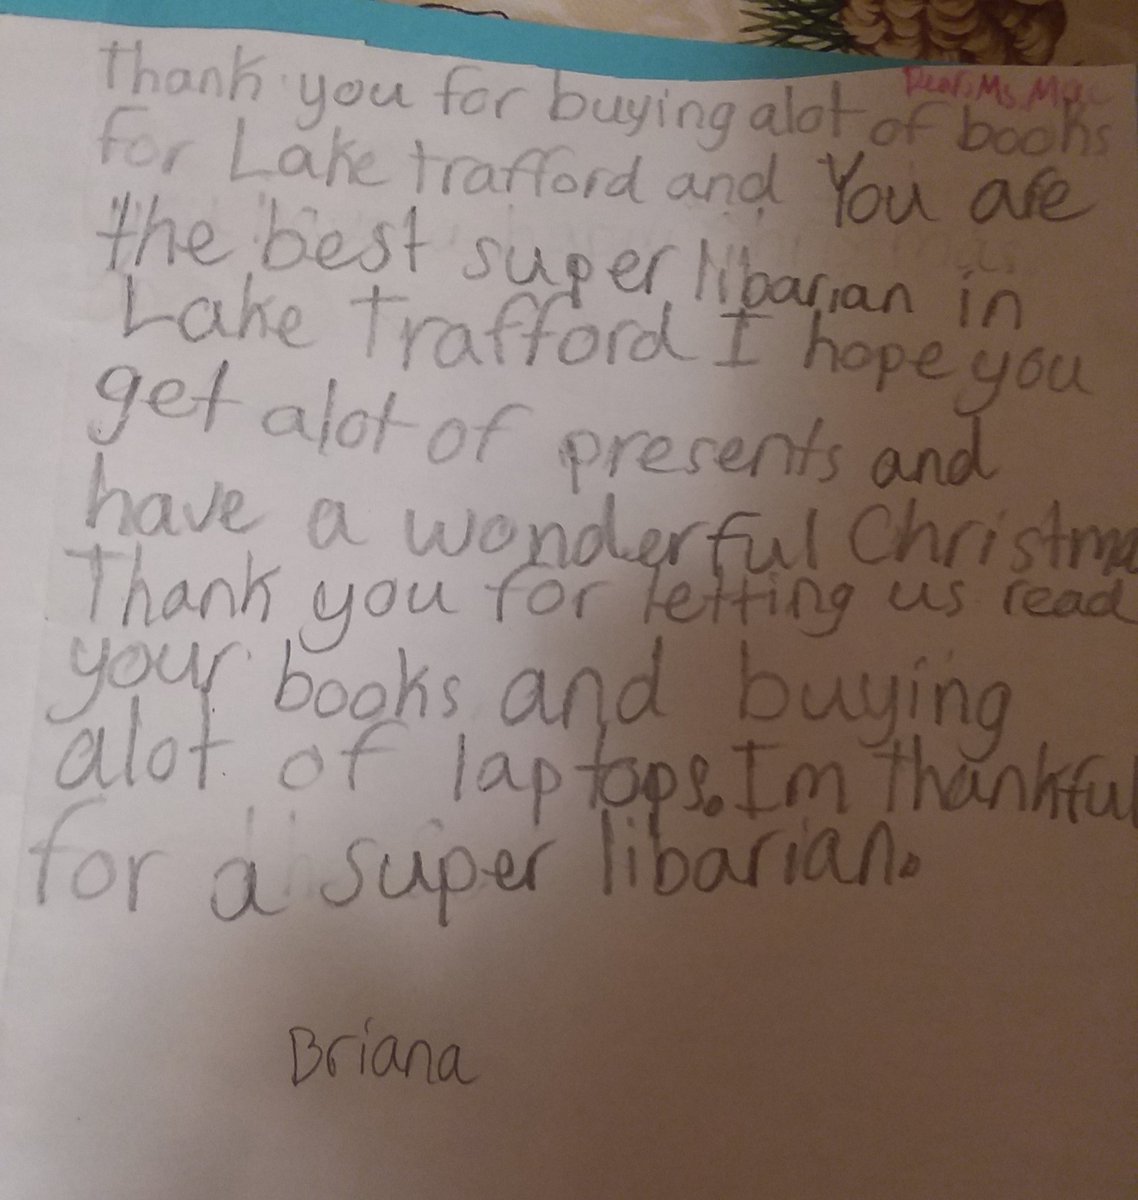 Dear, Ms.
thank you for buying alot of books
for Lake trafford and You are
the best super libarian in
Lake Trafford I hope you
get alot of presents and
have a wonderful Christma
Thank you for letting us read
your books and buying
alot of laptops. Im thankful
for a super libarian.
Briana